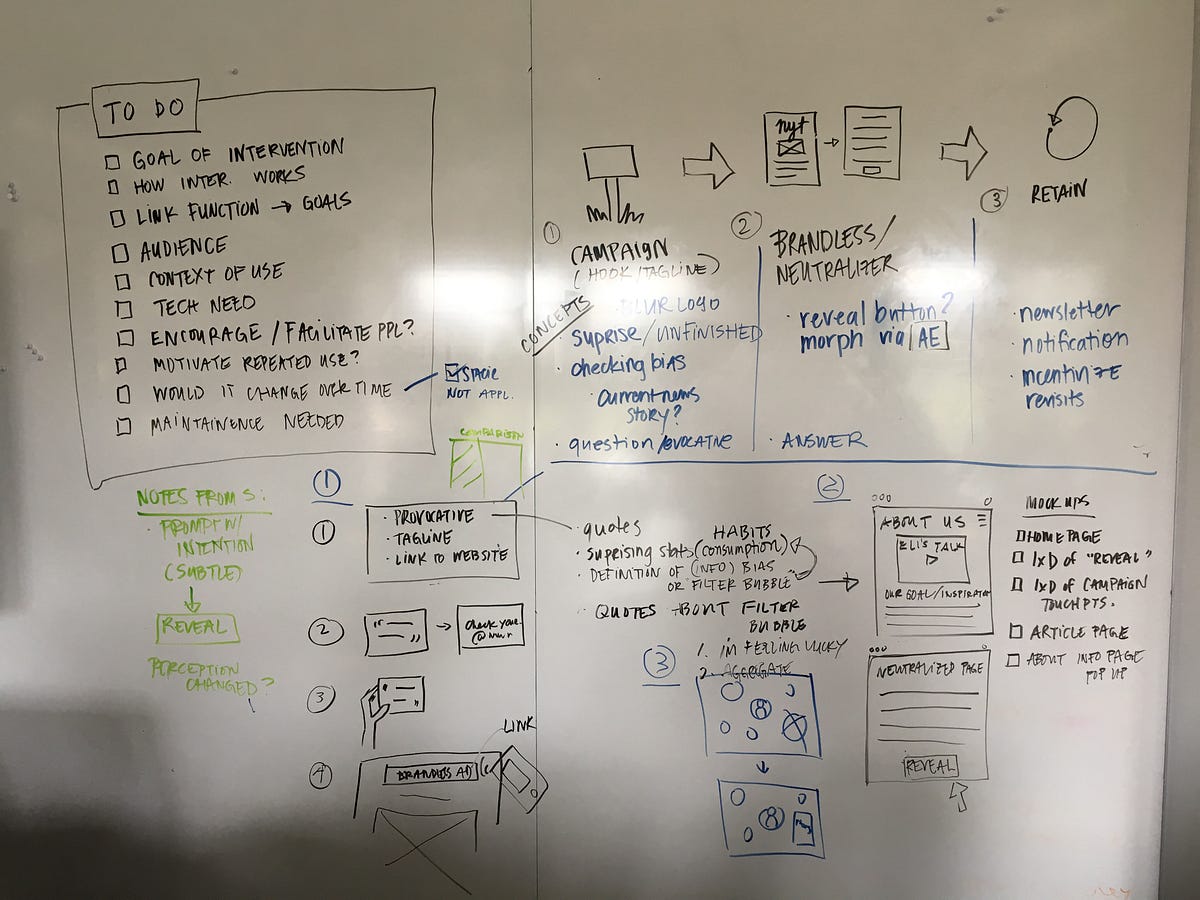 TO DO
GOAL OF INTERVENTION
HOW INTER. WORKS
LINK FUNCTION → GOALS
AUDIENCE
CONTEXT OF USE
TECH NEED
ENCOURAGE / FACILITATE PPL?
MOTIVATE REPEATED USE?
WOULD IT CHANGE OVER TIME
MAINTAINENCE NEEDED
STATIC
NOT APPL.
nyt
① 
CAMPAIGN
(HOOK/TAGLINE)
CONCEPTS
· BLUR LOGO
· SUPRISE/UNFINISHED
· checking bias
current news
story?
· question/evocative
②
BRANDLESS/
NEUTRALIZER
· reveal button?
morph via AE
· ANSWER
③
RETAIN
· newsletter
· notification
· incentivize
revisits
NOTES FROM S:
· PROMPT W/
INTENTION
(SUBTLE)
REVEAL
PERCEPTION
CHANGED?
COMPARISON
①
①
· PROVOCATIVE
· TAGLINE
· LINK TO WEBSITE
②
check your
③
④
BRANDLESS AD
LINK
· quotes
HABITS
· suprising stats (consumption)
· DEFINITION OF (INFO) BIAS
OR FILTER BUBBLE
· QUOTES ABOUT FILTER
BUBBLE
③
1. I'M FEELING LUCKY
2. AGGREGATE
②
ABOUT US
ELI'S TALK
OUR GOAL/INSPIRATION
NEUTRALIZED PAGE
REVEAL
MOCKUPS
HOMEPAGE
IxD of "REVEAL"
IxD of CAMPAIGN
TOUCHPTS.
ARTICLE PAGE
ABOUT INFO PAGE
POP UP